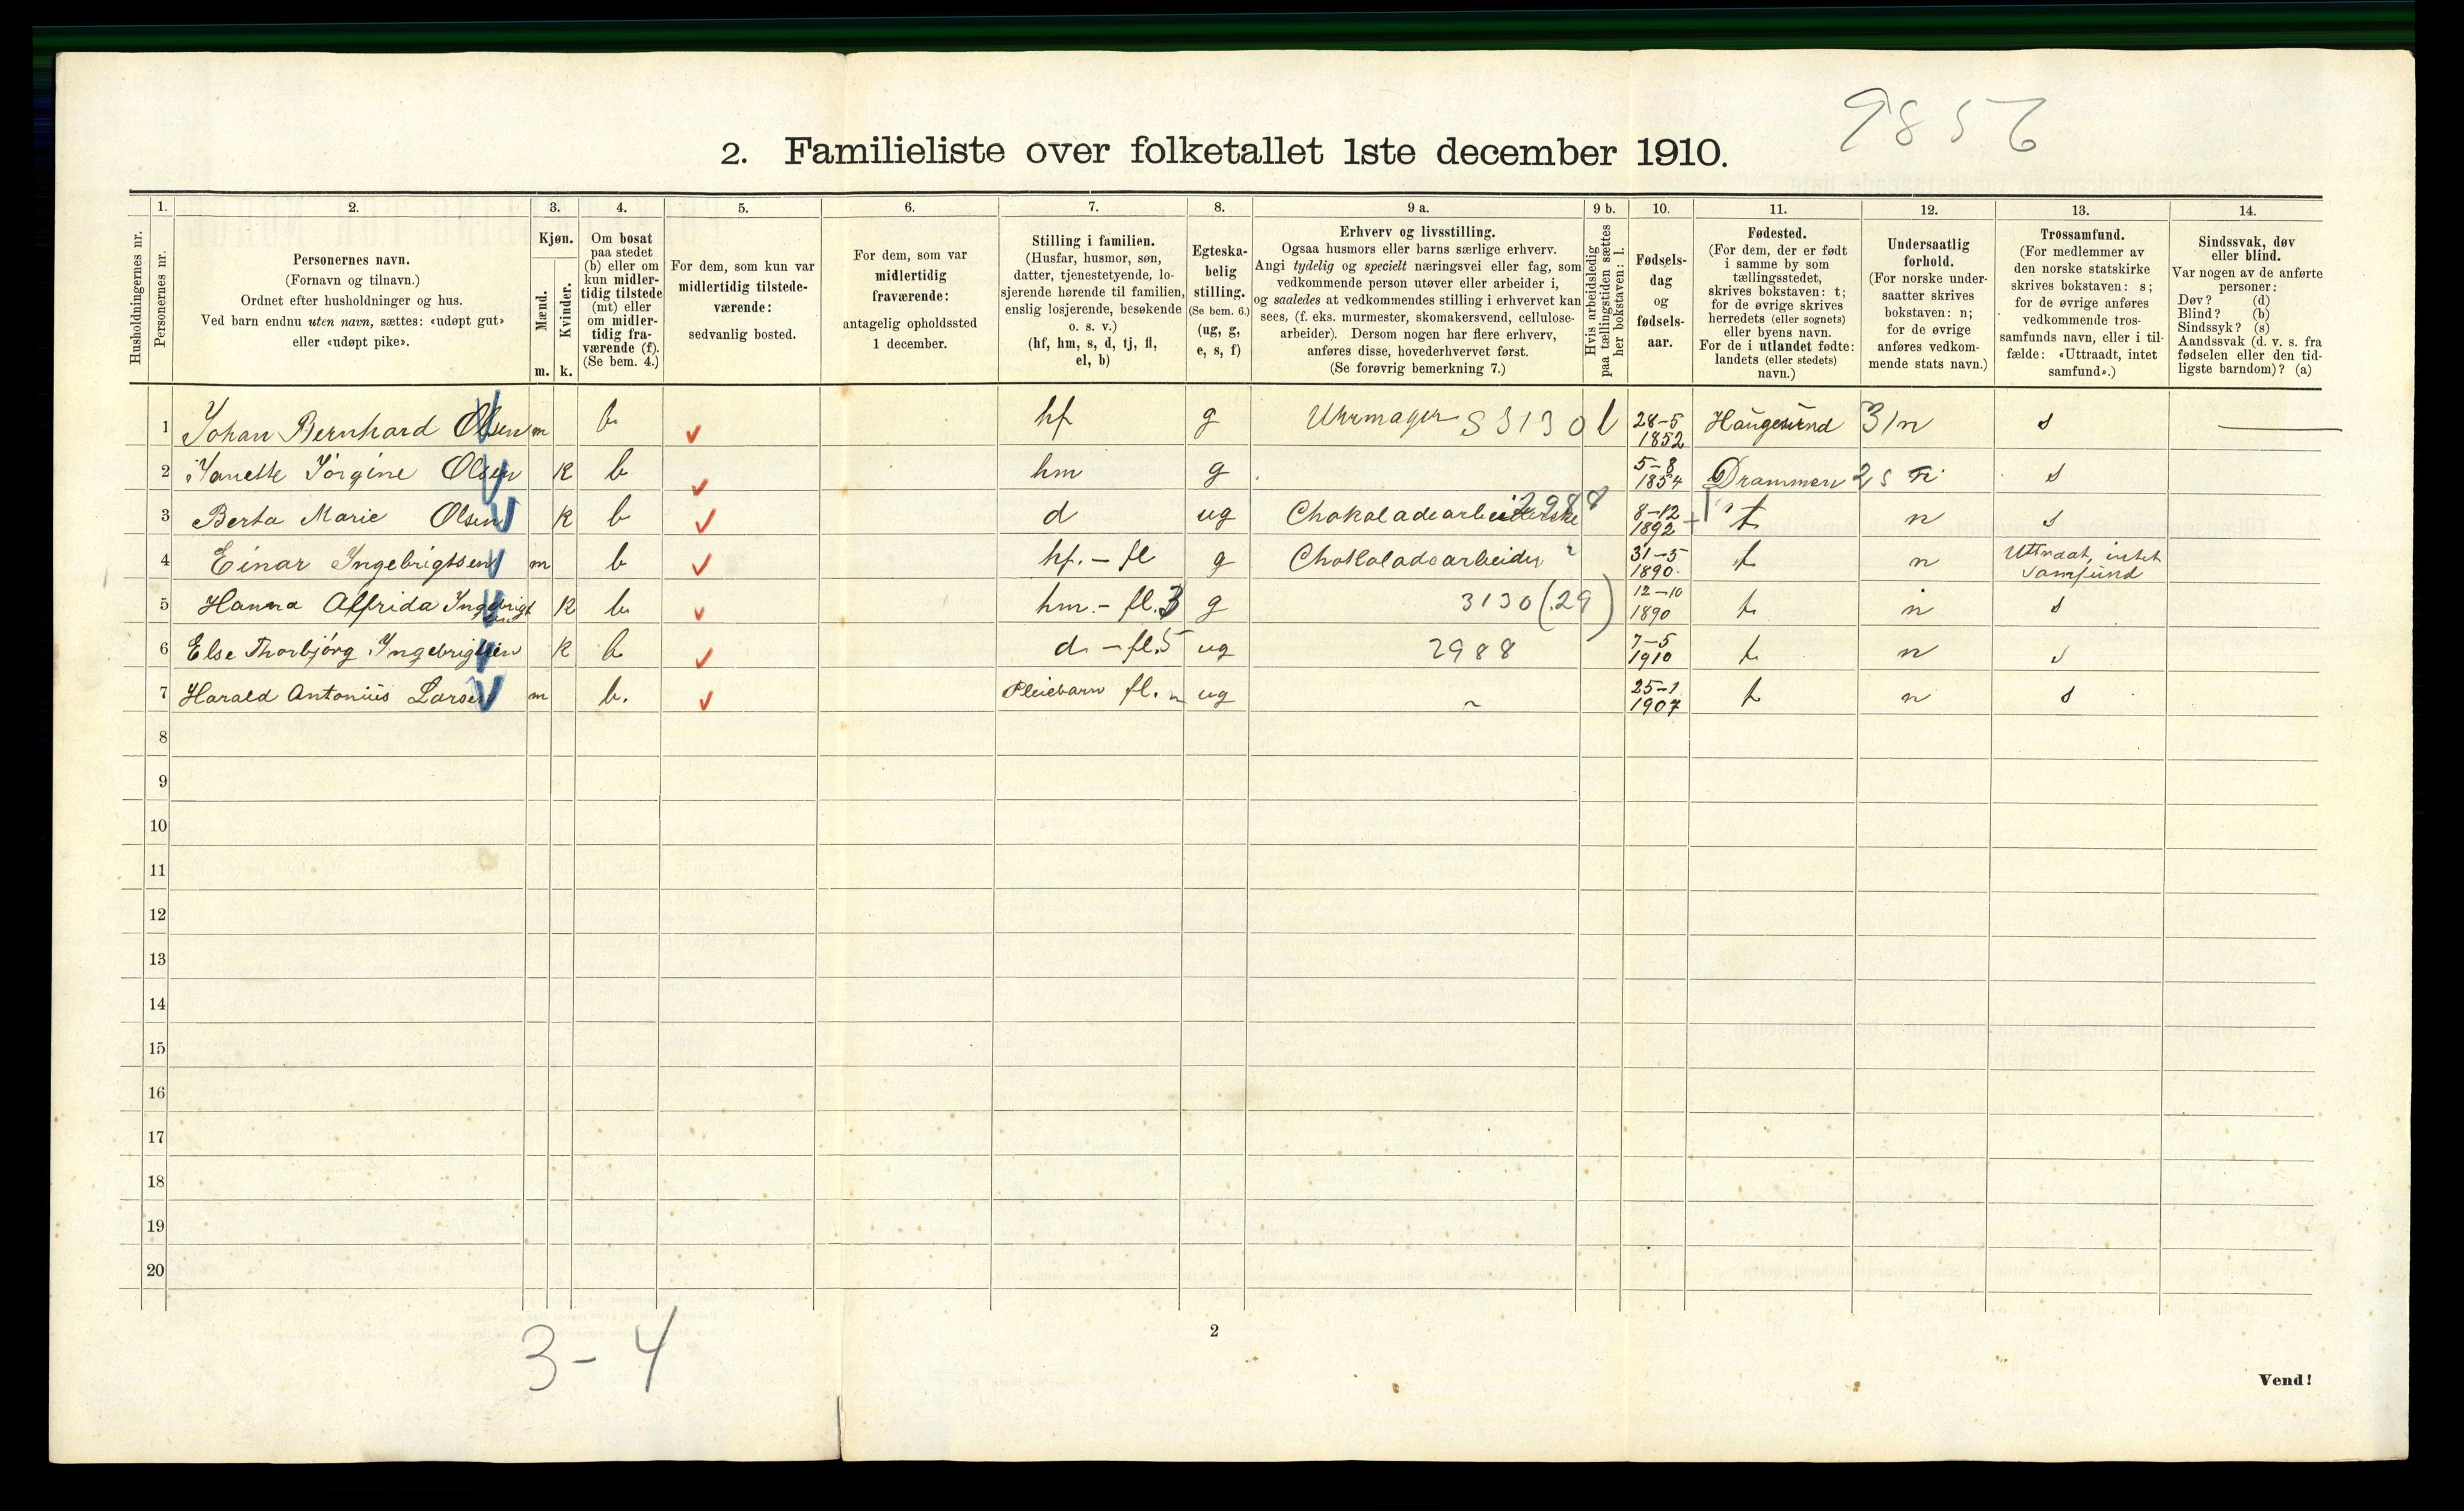 9856
2. Familieliste over folketallet 1ste december 1910.
Husholdningernes nr.
1.
Personernes nr.
2.
Personernes navn.
(Fornavn og tilnavn.)
Ordnet efter husholdninger og hus.
Ved barn endnu uten navn, sættes: «udøpt gut»
eller «udøpt pike».
3.
Kjøn.
Mænd.
Kvinder.
m. k.
4.
Om bosat
paa stedet
(b) eller om
kun midler-
tidig tilstede
(mt) eller
om midler-
tidig fra-
værende (f).
(Se bem. 4.)
5.
For dem, som kun var
midlertidig tilstede-
værende:
sedvanlig bosted.
6.
For dem, som var
midlertidig
fraværende:
antagelig opholdssted
1 december.
7.
Stilling i familien.
(Husfar, husmor, søn,
datter, tjenestetyende, lo-
sjerende hørende til familien,
enslig losjerende, besøkende
o. s. v.)
(hf, hm, s, d, tj, fl,
el, b)
8.
Egteska-
belig
stilling.
(Se bem. 6.)
(ug, g,
e, s, f)
9 a.
Erhverv og livsstilling.
Ogsaa husmors eller barns særlige erhverv.
Angi tydelig og specielt næringsvei eller fag, som
vedkommende person utøver eller arbeider i,
og saaledes at vedkommendes stilling i erhvervet kan
sees, (f. eks. murmester, skomakersvend, cellulose-
arbeider). Dersom nogen har flere erhverv,
anføres disse, hovederhvervet først.
(Se forøvrig bemerkning 7.)
9 b.
Hvis arbeidsledig
paa tællingstiden sættes
her bokstaven: l.
10.
Fødsels-
dag
og
fødsels-
aar.
11.
Fødested.
(For dem, der er født
i samme by som
tællingsstedet,
skrives bokstaven: t;
for de øvrige skrives
herredets (eller sognets)
eller byens navn.
For de i utlandet fødte:
landets (eller stedets)
navn.)
12.
Undersaatlig
forhold.
(For norske under-
saatter skrives
bokstaven: n;
for de øvrige
anføres vedkom-
mende stats navn.)
13.
Trossamfund.
(For medlemmer av
den norske statskirke
skrives bokstaven: s;
for de øvrige anføres
vedkommende tros-
samfunds navn, eller i til-
fælde: «Uttraadt, intet
samfund».)
14.
Sindssvak, døv
eller blind.
Var nogen av de anførte
personer:
Døv? (d)
Blind? (b)
Sindssyk? (s)
Aandssvak (d. v. s. fra
fødselen eller den tid-
ligste barndom)? (a)
1 Johan Bernhard Olsen m b hf g Uhrmager S 3130 l 28-5 1852 Haugesund 31 n s
2 Olsen K b hm g 5-8 1854 Drammen 25 n s
3 Berta Marie Olsen K b d ug Chokaladearbeiderske 2988 8-12 1892 t n s
4 Einar Ingebrigtsen m b hf. - fl g Chokoladearbeider 31-5 1890 t n Uttraat, intet samfund
5 Hanna Alfrida Ingebrigtsen K b hm. - fl. 3 g 3130 (.29) 12-10 1890 t n s
6 Else Thorbjørg Ingebrigtsen K b d - fl. 5 ug 2988 7-5 1910 t n s
7 Harald Antonius Larsen m b. Pleiebarn fl. ug 25-1 1907 t n s
8
9
10
11
12
13
14
15
16
17
18
19
20
3-4
2
Vend!